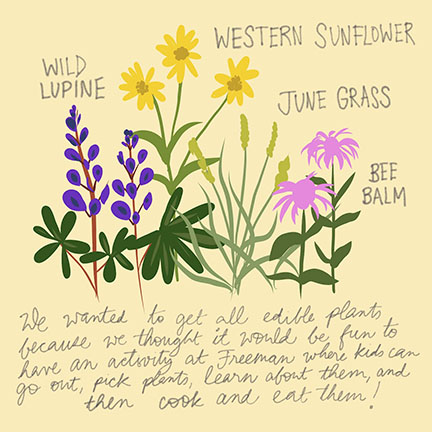 WESTERN SUNFLOWER
WILD
LUPINE
JUNE GRASS
BEE
BALM
We wanted to get all edible plants
because we thought it would be fun to
have an activity at Freeman where kids can
go out, pick plants, learn about them, and
then cook and eat them!